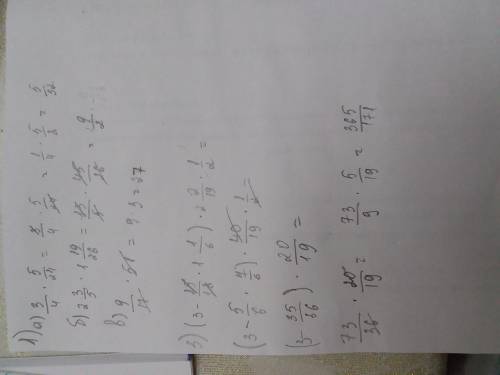 1) а) 3/4 · 5/24 = 3/4 · 5/24 = 1/4 · 5/8 = 5/32
б) 2 3/5 · 1 19/26 = 13/5 · 45/26 = 9/2
в) 9/17 · 51 = 9 · 3 = 27
3) (3 - 15/18 · 1 1/6) · 2 2/19 · 1/2 =
(3 - 5/6 · 7/6) · 40/19 · 1/2
(3 - 35/36) · 20/19 =
73/36 · 20/19 = 73/9 · 5/19 = 365/171